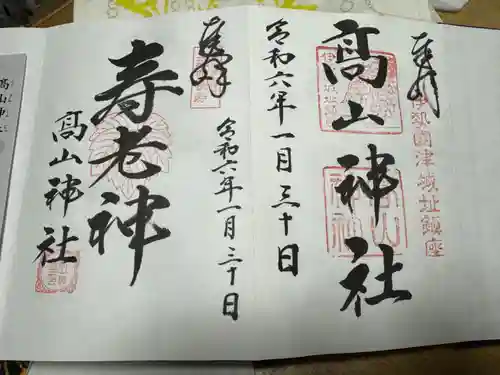 奉拝
伊勢国津城址鎮座
髙山神社
令和六年一月三十日
奉拝
令和六年一月三十日
寿老神
髙山神社